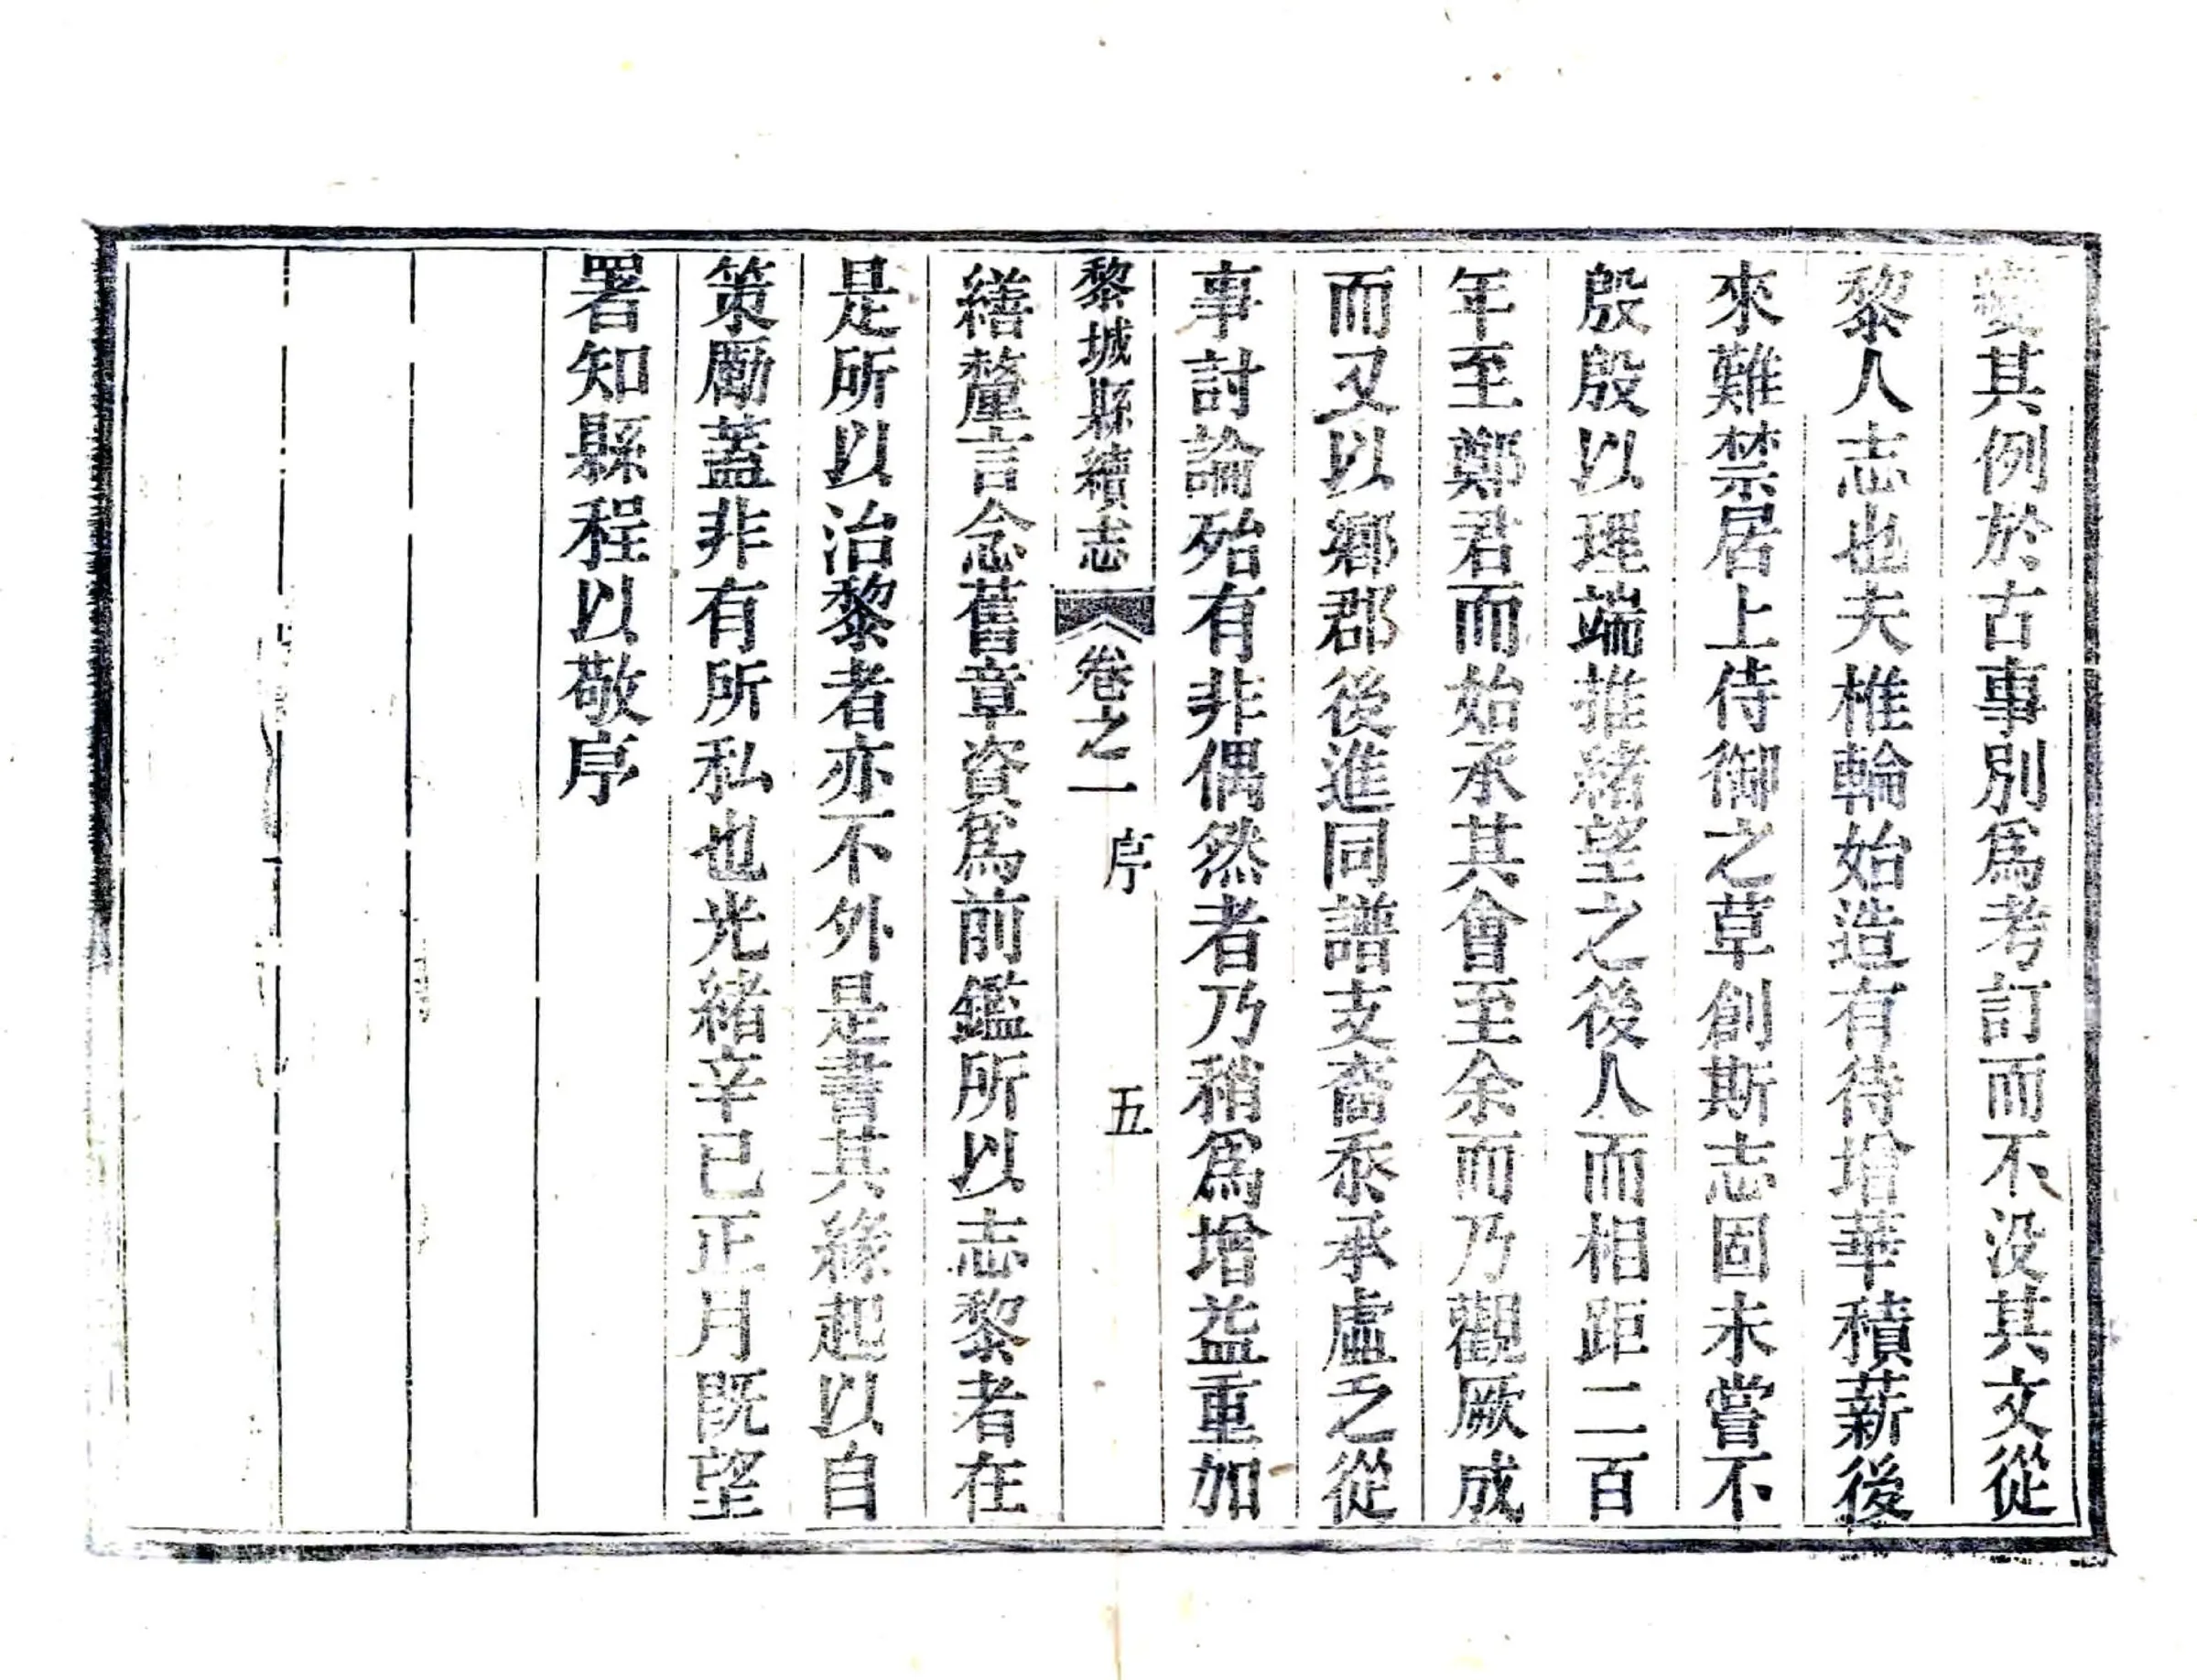 變其例於古事別爲考訂而不没其文從
黎人志也夫椎輪始造有待增華積薪後
來難禁居上侍御之草創斯志固未嘗不
殷殷以理端推緒望之後人而相距二百
年至鄭君而始承其會至余而乃觀厥成
而又以鄉郡後進同譜支裔忝承虛乏從
事討論殆有非偶然者乃稍爲增益重加
黎城縣續志 卷之一 序 五
繕釐言念舊章資爲前鑑所以志黎者在
是所以治黎者亦不外是書其緣起以自
策勵蓋非有所私也光緒辛巳正月既望
署知縣程以敬序